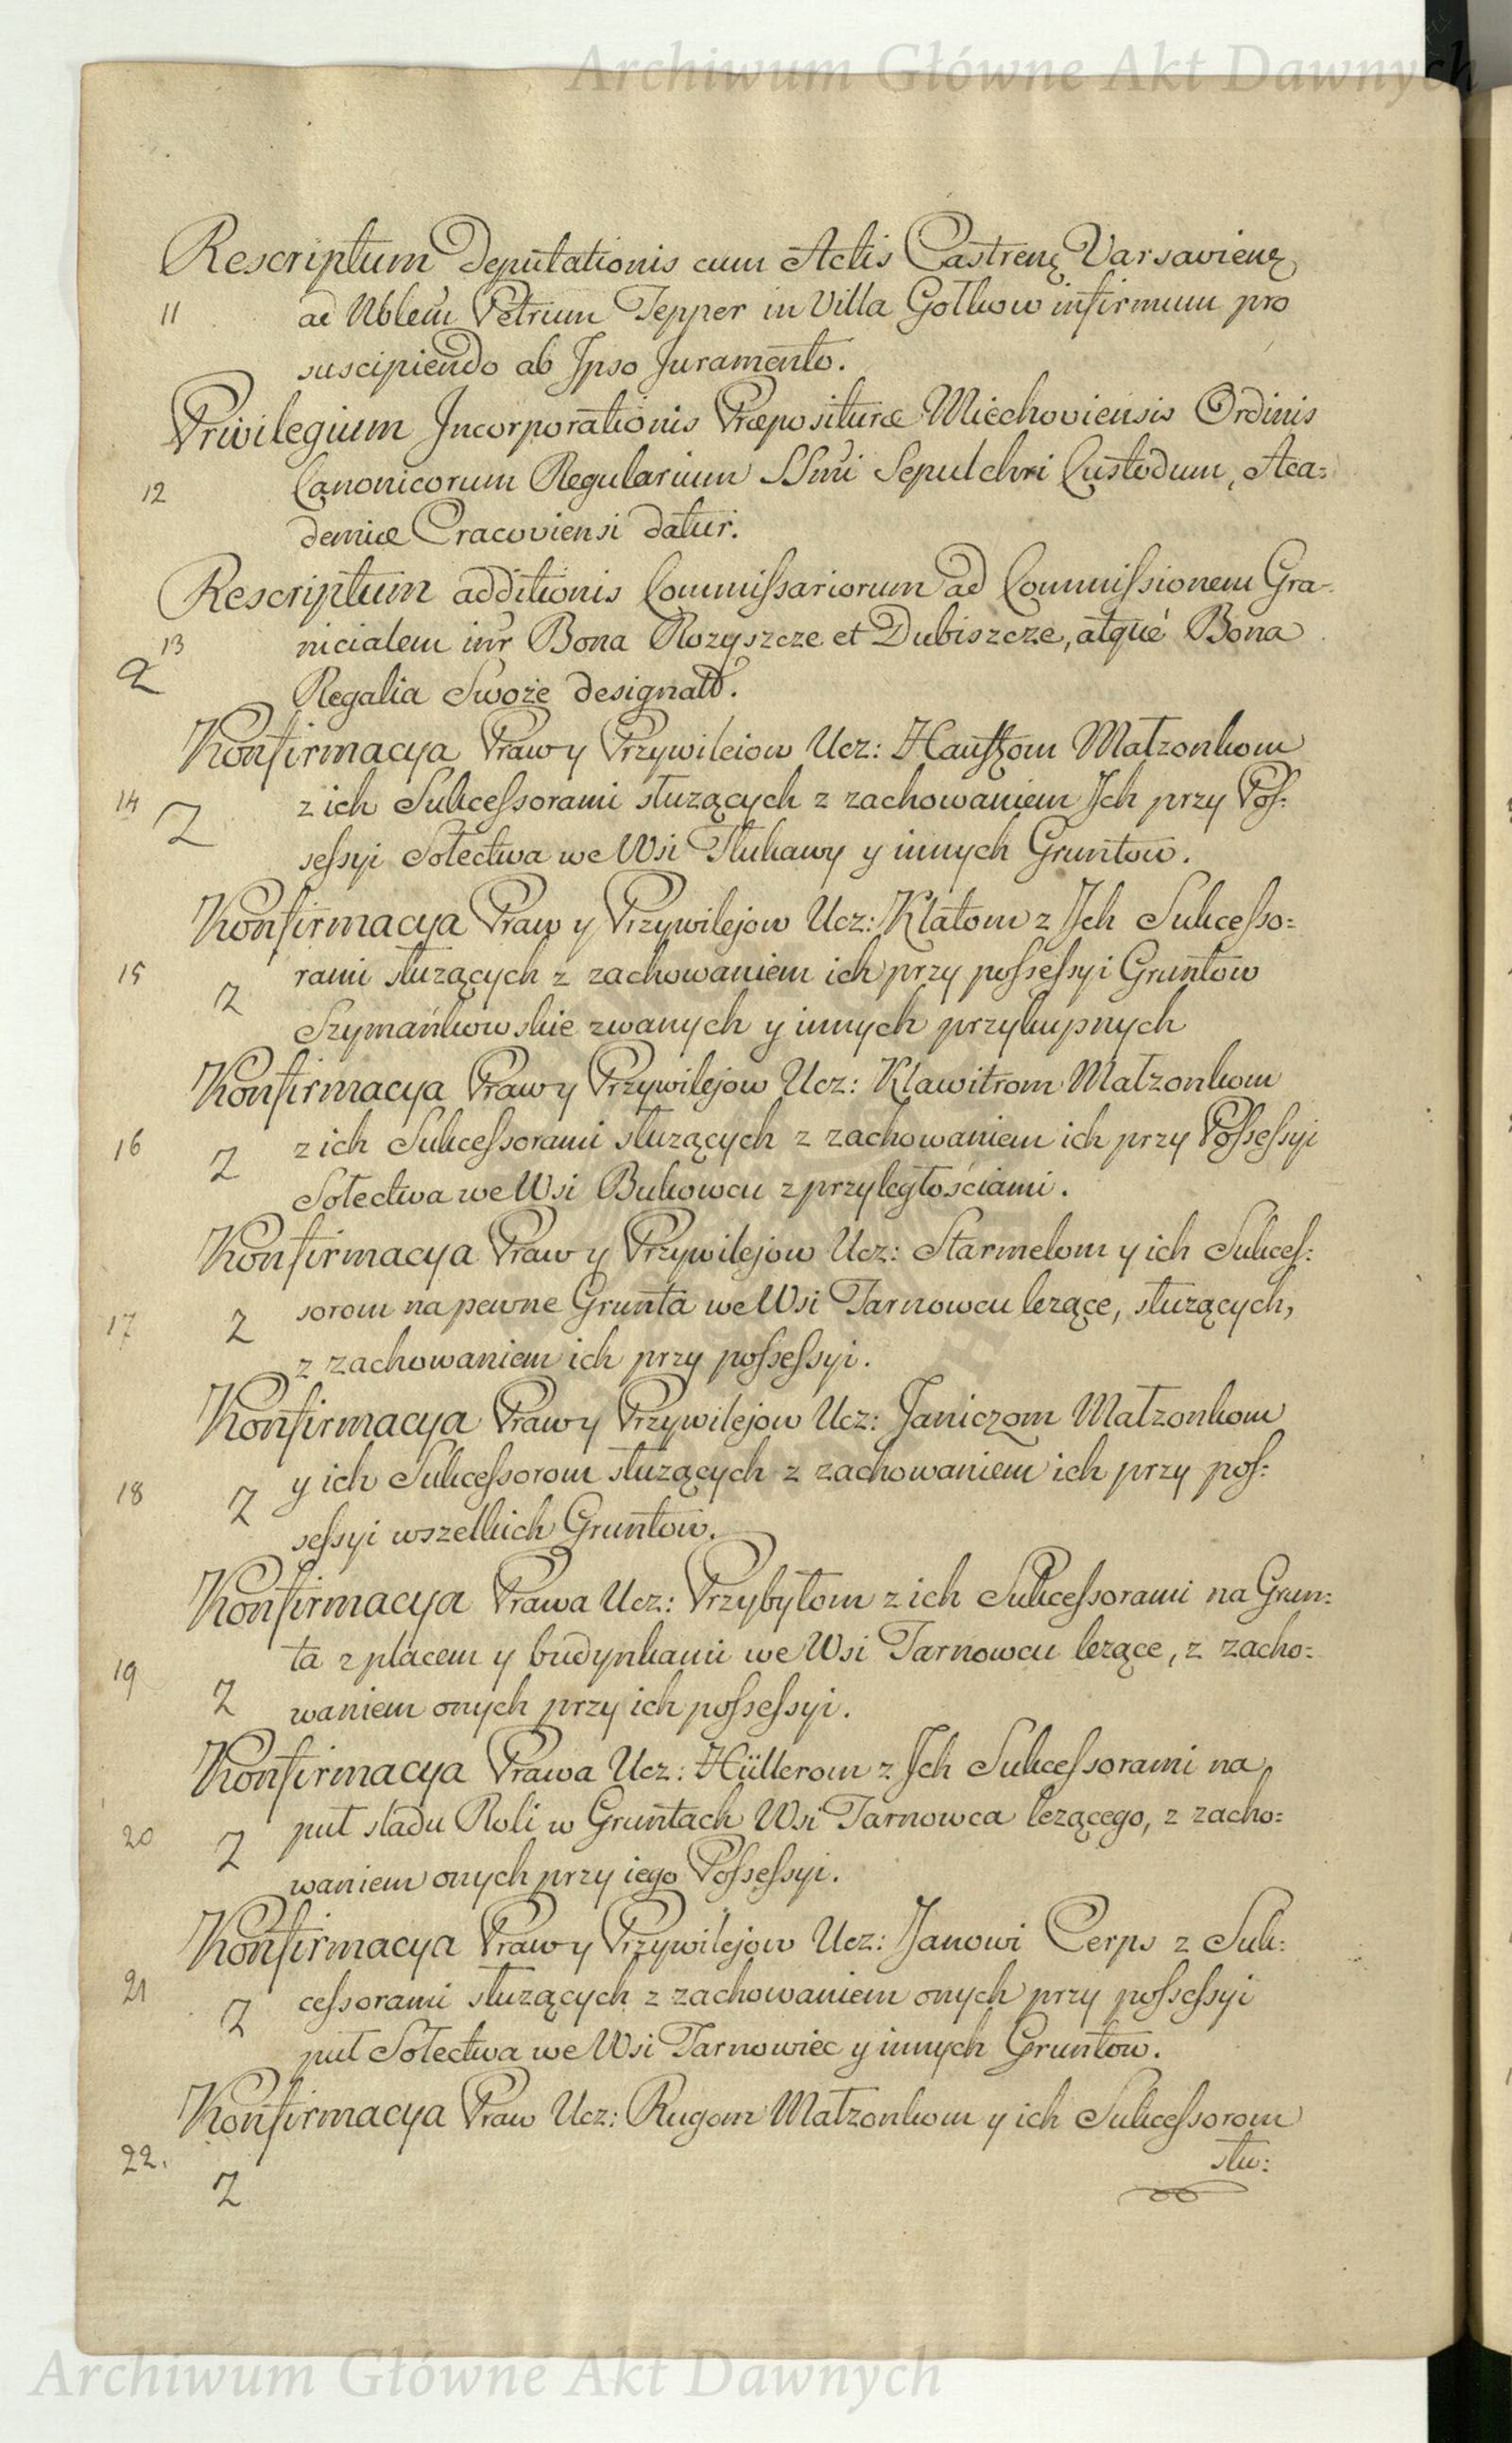 Archiwum Główne Akt Dawnych
Rescriptum Deputationis cum Actis Castrenę Varsavienę
11 ad Nblem Petrum Tepper in Villa Gołkow infirmum pro
suscipiendo ab Ipso Juramento.
Privilegium Incorporationis Præposituræ Miechoviensis Ordinis
12 Canonicorum Regularium SSmi Sepulchri Custodum, Aca:
demiæ Cracoviensi datur.
Rescriptum additionis Commissariorum ad Commissionem Gra-
13 nicialem inr Bona Rozyszcze et Dubiszcze, atque Bona
2 Regalia Swoże designatt.
Konfirmacya Praw y Przywileiow Ucz: Małzonkom
14 2 z ich Sukcessorami służących z zachowaniem Ich przy Pos:
sessyi Sołectwa we Wsi Tłukawy y innych Gruntow.
Konfirmacya Praw y Przywilejow Ucz: Klatom z Ich Sukcesso:
15 2 rami służących z zachowaniem ich przy possessyi Gruntow
Szymańkowskie zwanych y innych przykupnych
Konfirmacya Praw y Przywilejow Ucz: Klawitrom Małzonkom
16 2 z ich Sukcessorami służących z zachowaniem ich przy Possessyi
Sołectwa we Wsi Bukowcu z przyległościami.
Konfirmacya Praw y Przywilejow Ucz: Starmelom y ich Sukces:
17 2 sorom na pewne Grunta we Wsi Tarnowcu leżące, służących,
z zachowaniem ich przy possessyi.
Konfirmacya Praw y Przywilejow Ucz: Janiczom Małzonkom
18 2 y ich Sukcessorom służących z zachowaniem ich przy pos:
sessyi wszelkich Gruntow.
Konfirmacya Prawa Ucz: Przybyłom z ich Sukcessorami na Grun:
19 ta z placem y budynkami we Wsi Tarnowcu leżące, z zacho:
2 waniem onych przy ich possessyi.
Konfirmacya Prawa Ucz: Hüllerom z Ich Sukcessorami na
20 2 puł sladu Roli w Gruntach Wsi Tarnowca leżącego, z zacho:
waniem onych przy iego Possessyi.
Konfirmacya Praw y Przywilejow Ucz: Janowi Cerps z Suk:
21 2 cessorami służących z zachowaniem onych przy possessyi
puł Sołectwa we Wsi Tarnowiec y innych Gruntow.
Konfirmacya Praw Ucz: Rugom Małzonkom y ich Sukcessorom
22. 2 słu:
Archiwum Główne Akt Dawnych